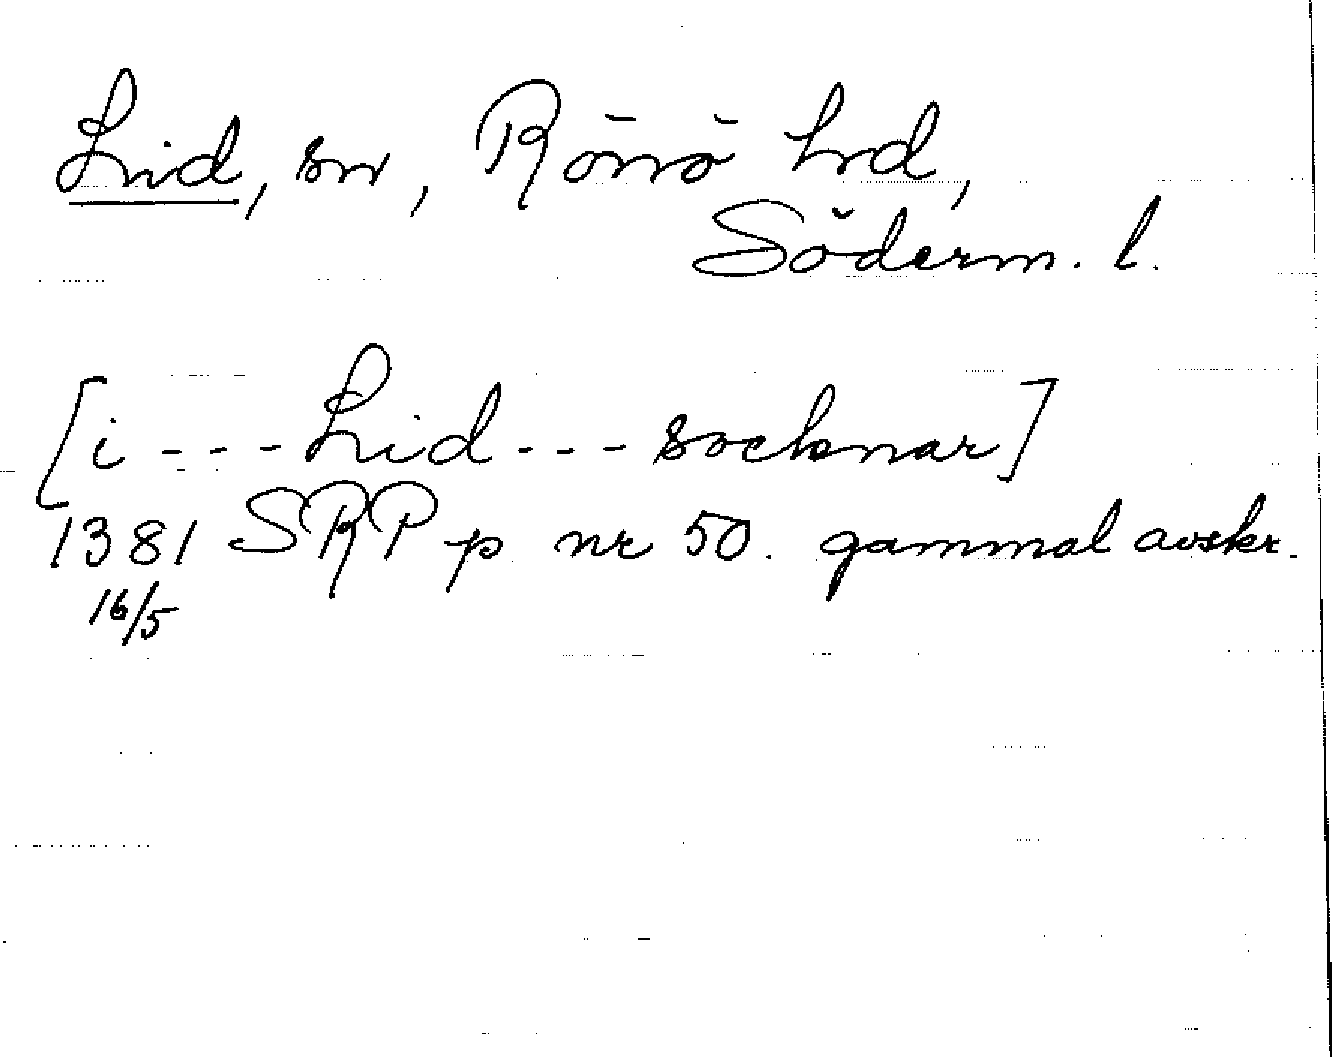 Lid, sn, Rönö hrd,
Söderm. l.
[i --- Lid --- socknar]
1381 SRP p nr 50. gammal avskr.
16/5